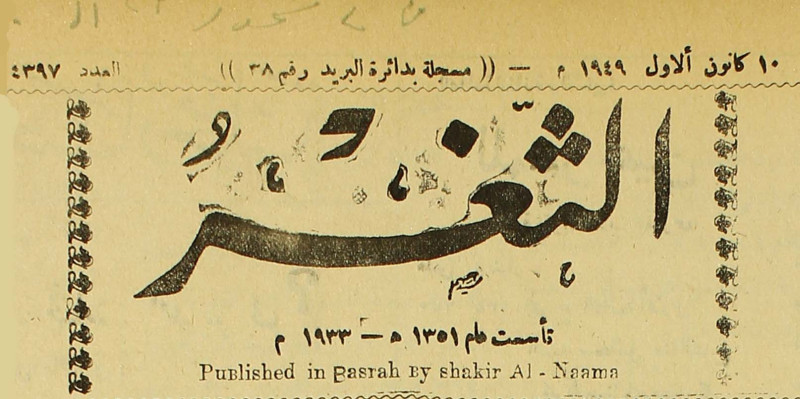 ١٠ كانون ألاول ١٩٤٩ م — (( مسجلة بدائرة البريد رقم ٣٨ )) العدد ٤٣٩٧
الثَّغْرُ
تأسست عام ١٣٥١ ه — ١٩٣٣ م
PuBlished in Basrah By shakir Al - Naama